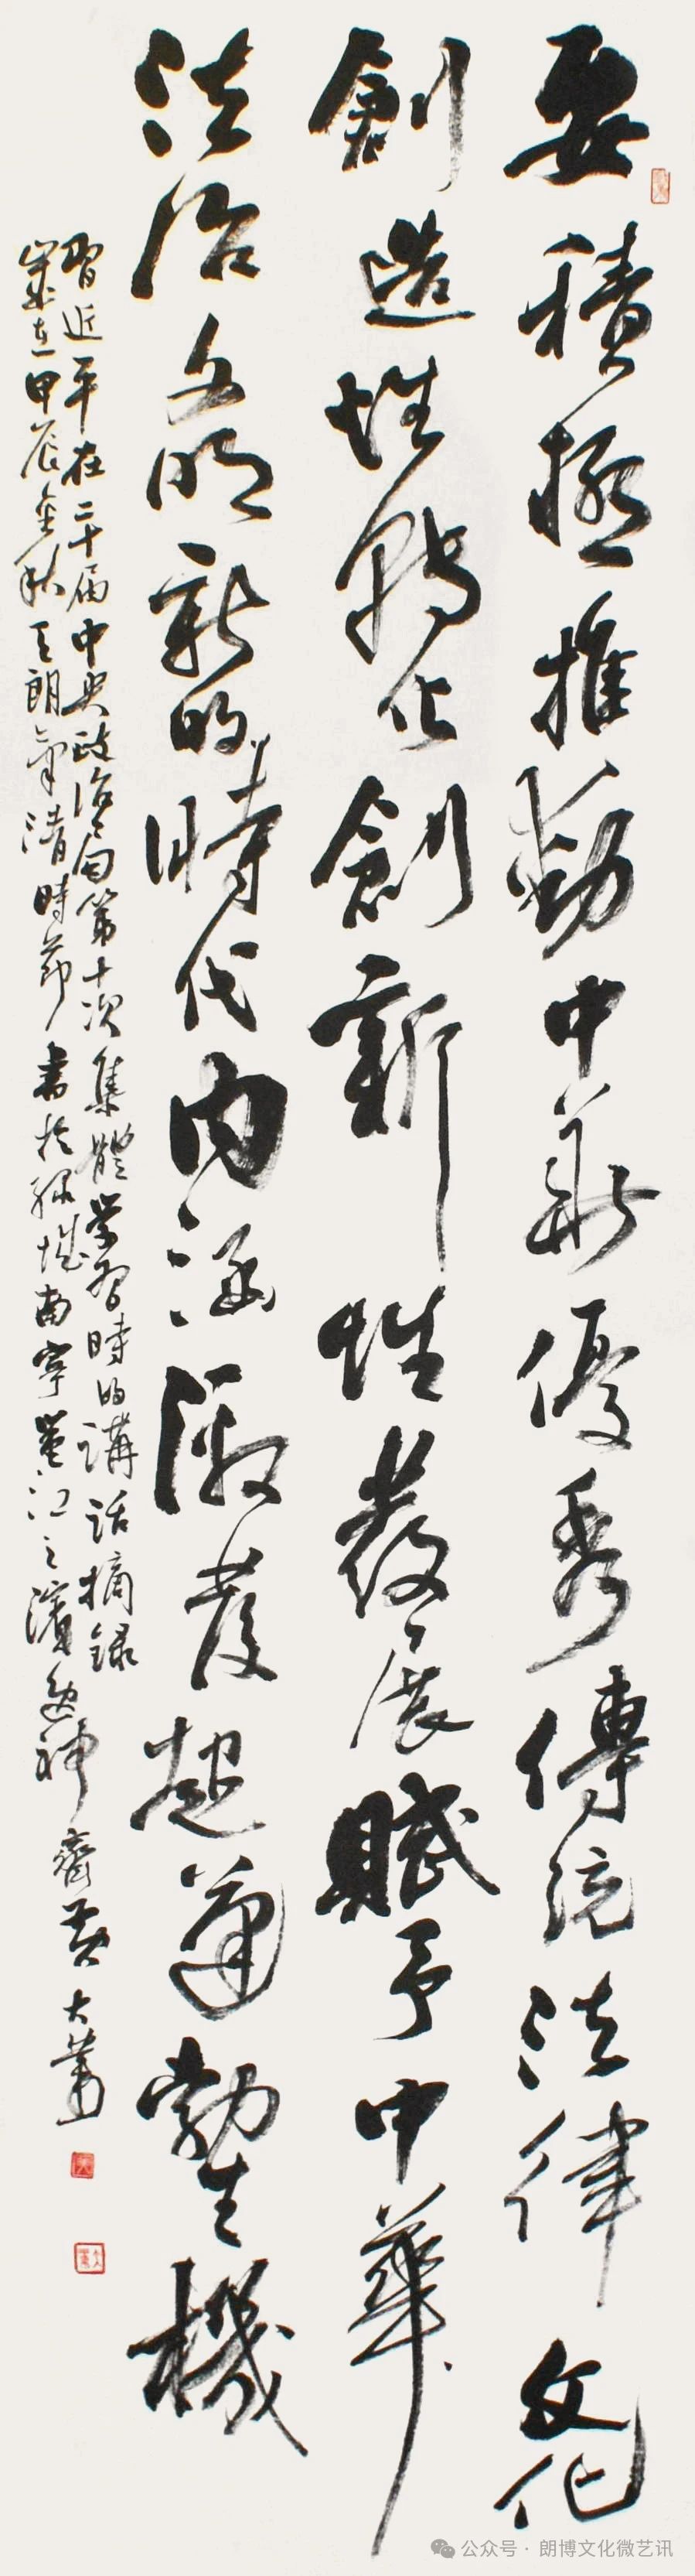 要積極推動中華優秀傳統法律文化
創造性轉化創新性發展賦予中華
法治文明新的時代内涵激發起蓬勃生機
習近平在二十届中央政治局第十次集體學習時的講話摘録
歲在甲辰金秋天朗氣清時節書於緑城南寧邕江之濱
齋黄大業
公众号·朗博文化微艺讯